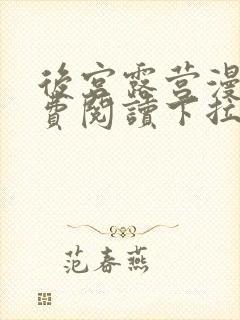 後宮露营漫
費閱讀下拉
范春燕